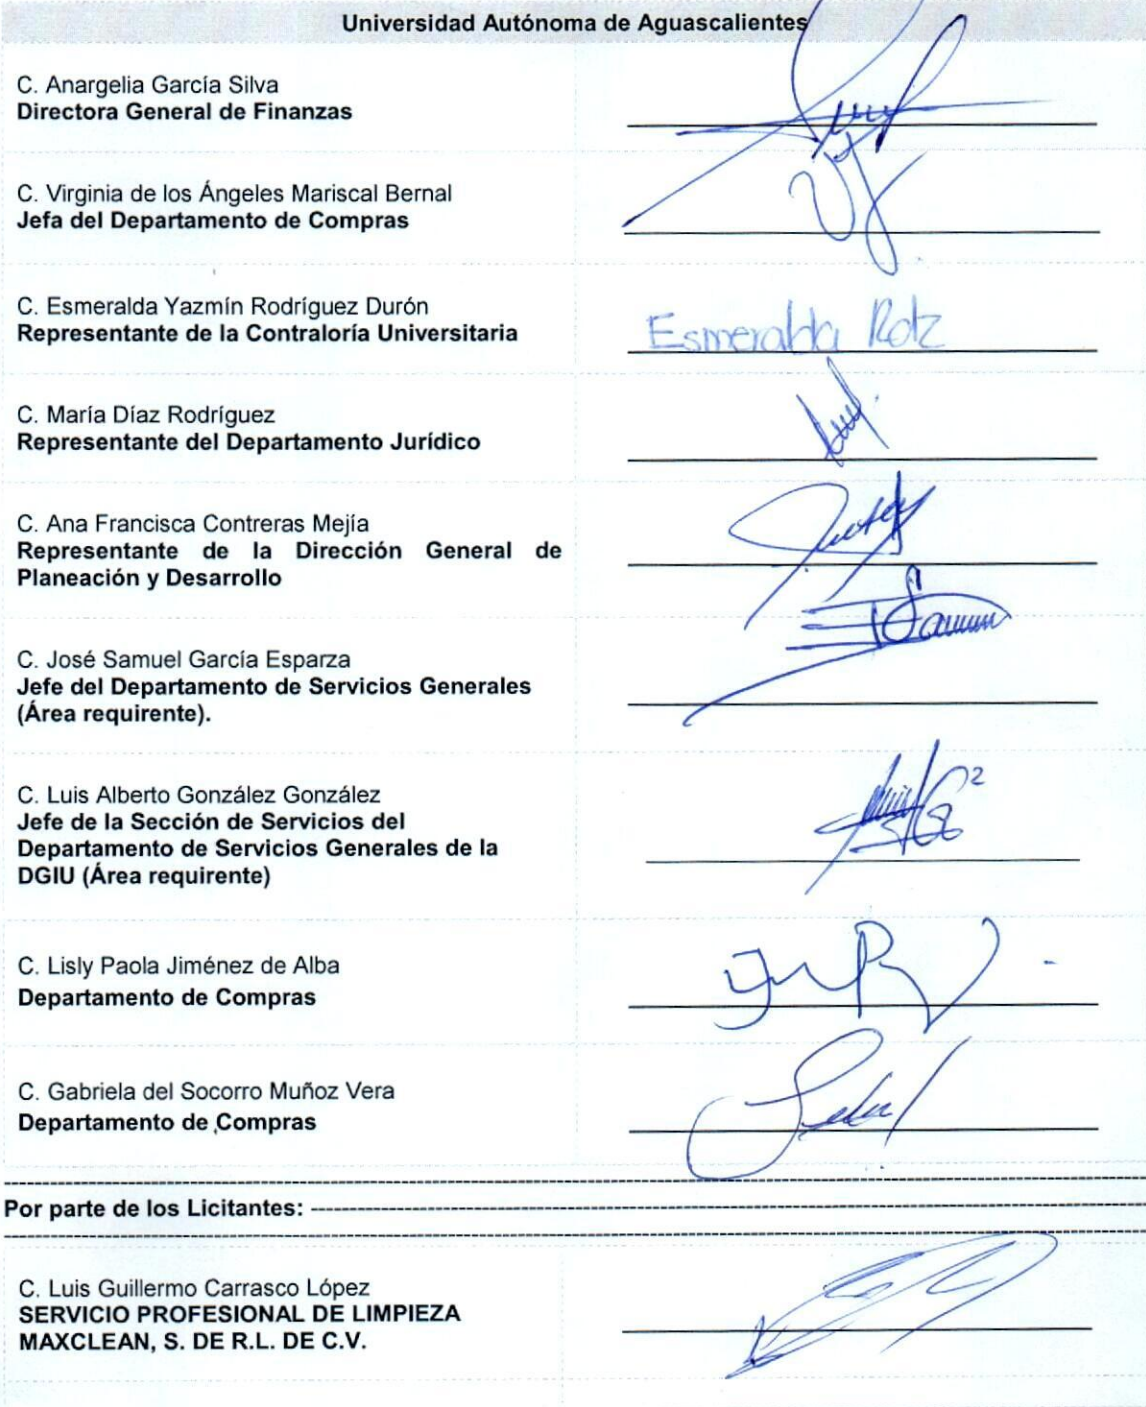 Universidad Autónoma de Aguascalientes
C. Anargelia García Silva
Directora General de Finanzas
C. Virginia de los Ángeles Mariscal Bernal
Jefa del Departamento de Compras
C. Esmeralda Yazmín Rodríguez Durón
Representante de la Contraloría Universitaria
Esmeralda Rdz
C. María Díaz Rodríguez
Representante del Departamento Jurídico
C. Ana Francisca Contreras Mejía
Representante de la Dirección General de
Planeación y Desarrollo
C. José Samuel García Esparza
Jefe del Departamento de Servicios Generales
(Área requirente).
C. Luis Alberto González González
Jefe de la Sección de Servicios del
Departamento de Servicios Generales de la
DGIU (Área requirente)
C. Lisly Paola Jiménez de Alba
Departamento de Compras
C. Gabriela del Socorro Muñoz Vera
Departamento de Compras
Por parte de los Licitantes:
C. Luis Guillermo Carrasco López
SERVICIO PROFESIONAL DE LIMPIEZA
MAXCLEAN, S. DE R.L. DE C.V.